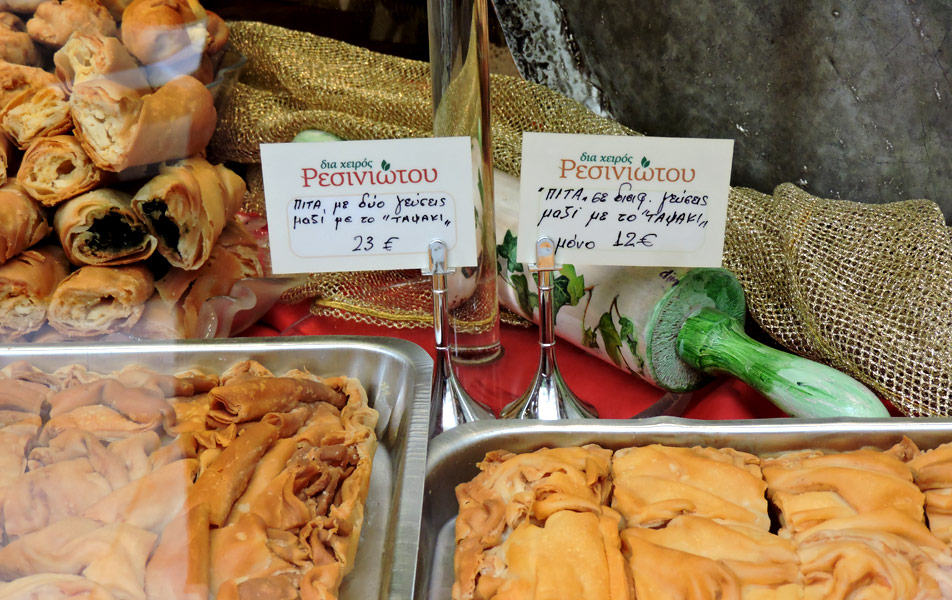 δια χειρός
ΡΕΣΙΝΙΩΤΟΥ
ΠΙΤΑ, με δύο γεύσεις
μαζί με το "ΤΑΨΑΚΙ„
23 €
δια χειρός
ΡΕΣΙΝΙΩΤΟΥ
"ΠΙΤΑ„ σε διαφ. γεύσεις
μαζί με το "ΤΑΨΑΚΙ„
μόνο 12€